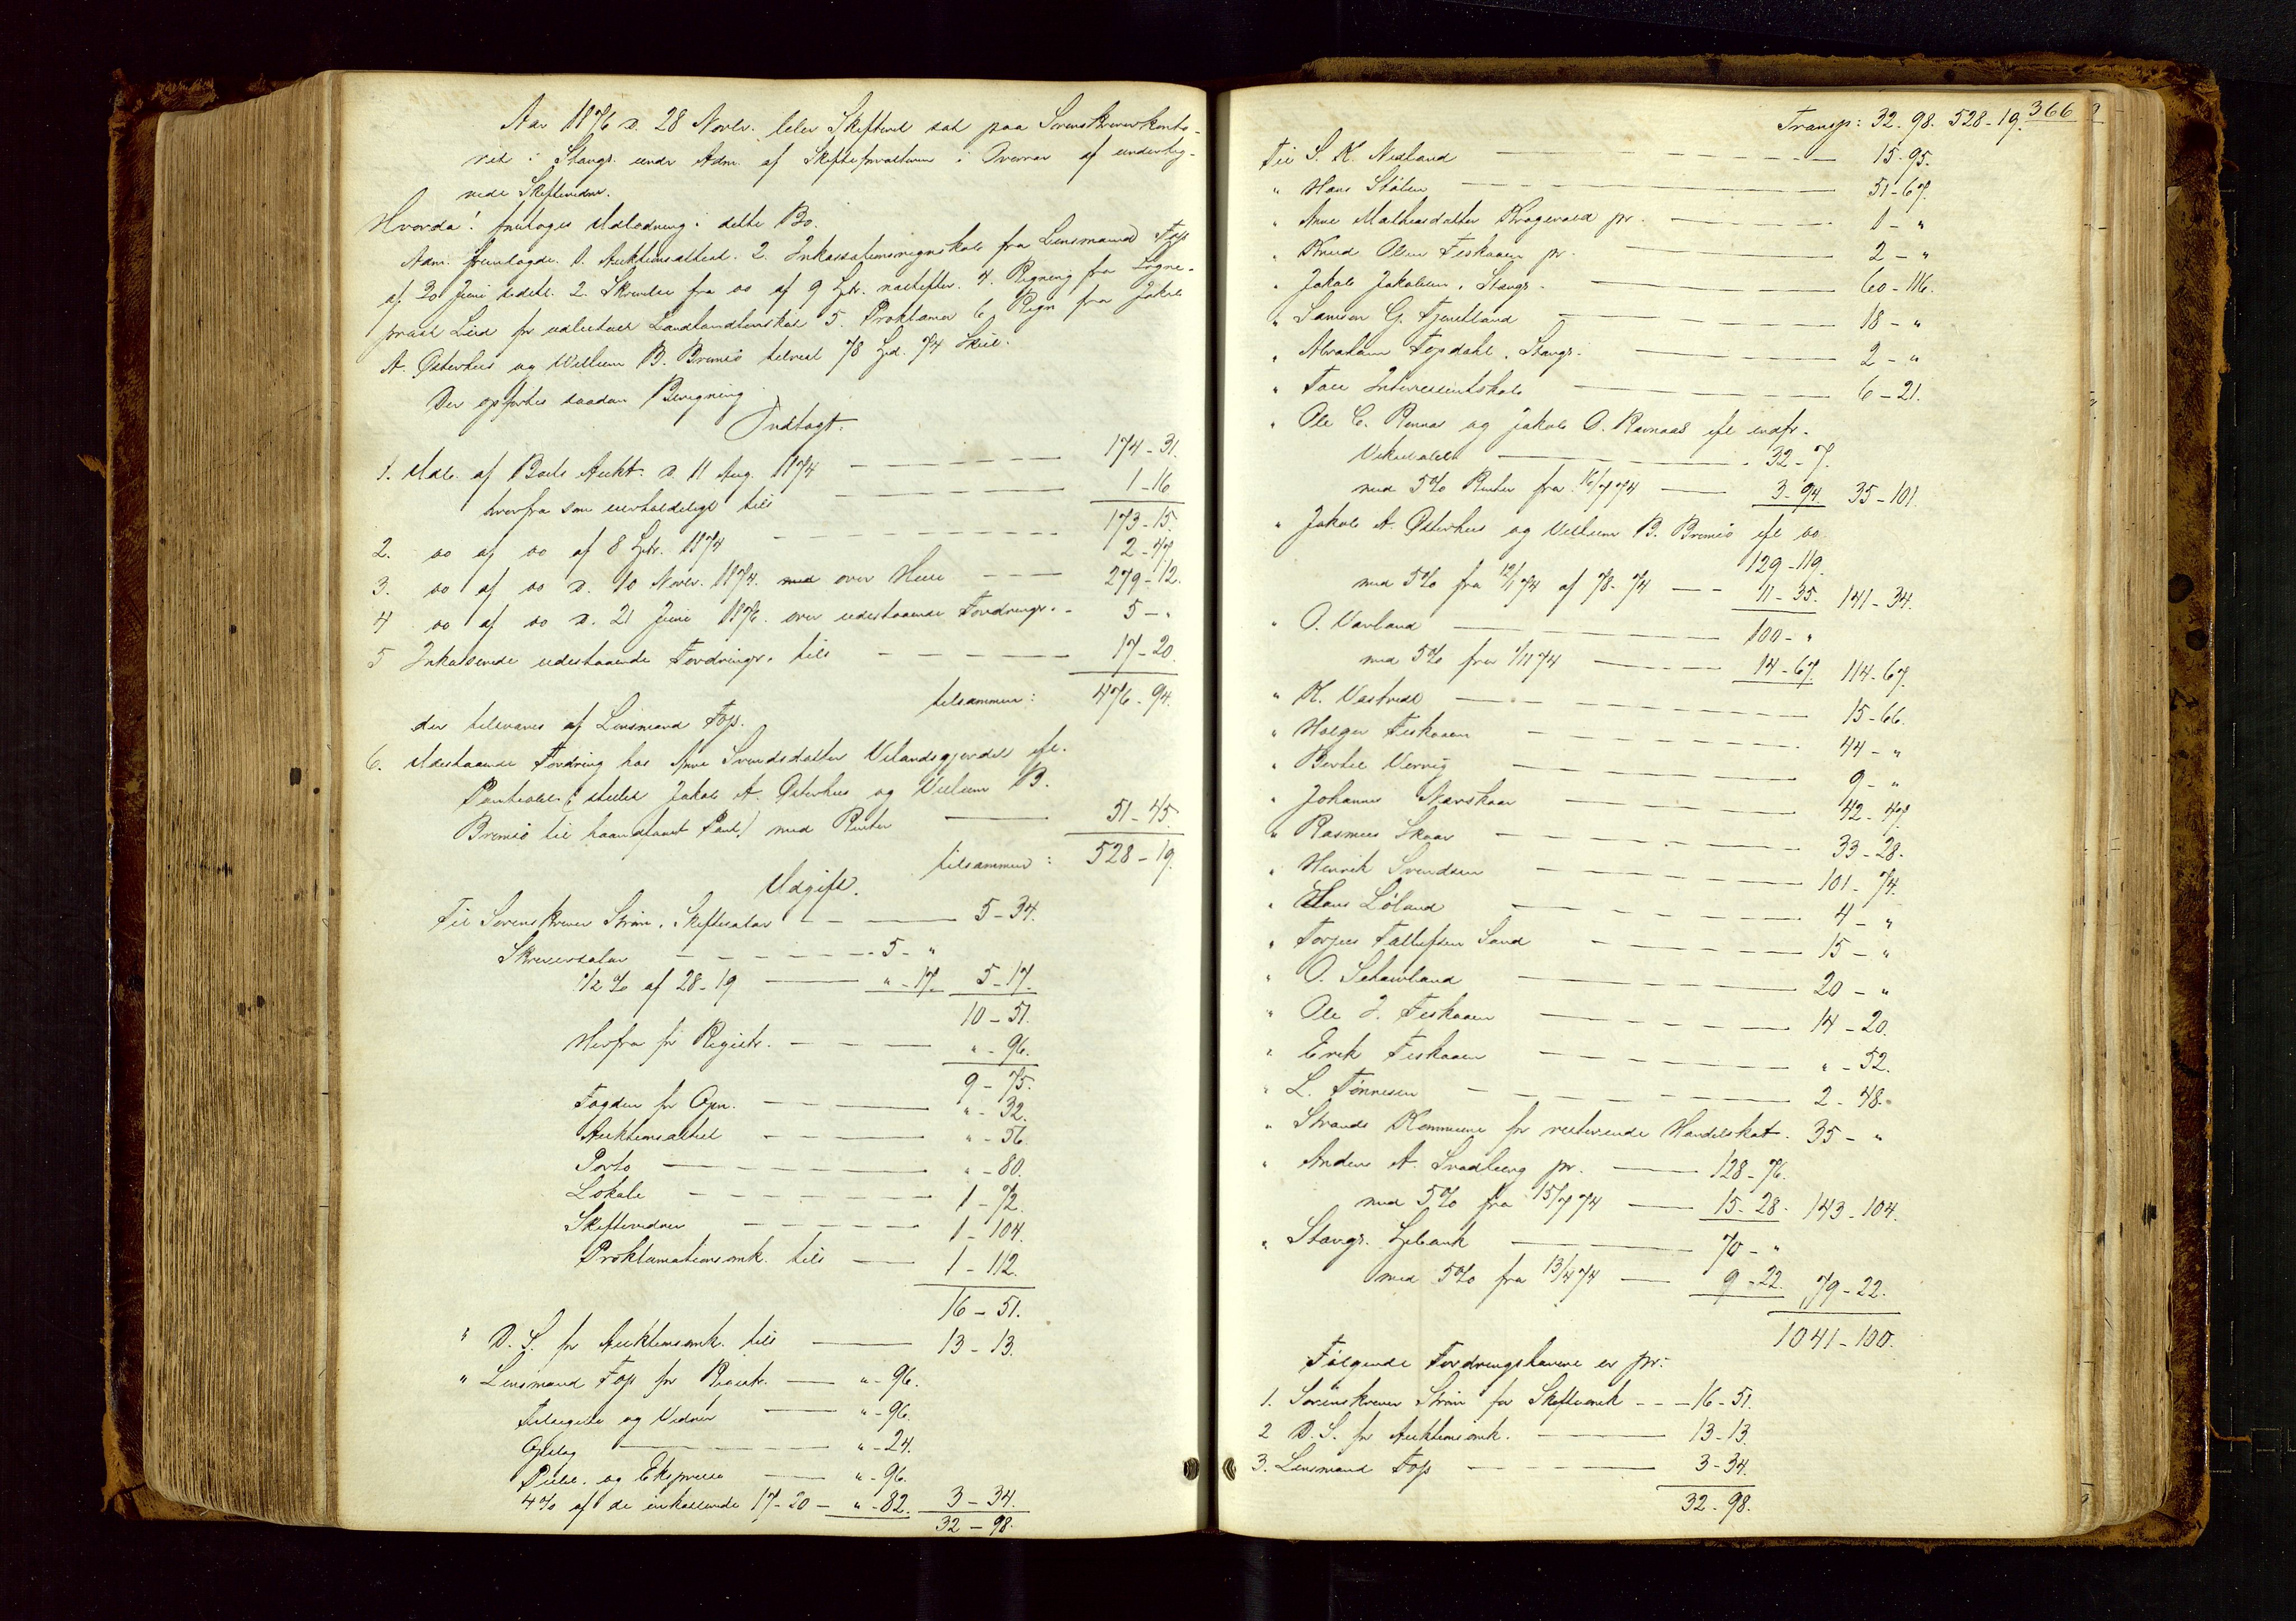 Aar 1876 d. 28 Novbr. blev Skifteret sat paa Sorenskriverkonto-
ret i Stavgr. under Adm. af Skifteforvalteren i Overvær af underteg-
nede Skiftevidner.
Hvorda! foretoges Udlodning i dette Bo.
Adm. fremlagde. 1. Auktionsattest. 2. Inkassationsregnskab fra Lensmand Top
af 30 Juni sidstl. 3. Skrivelse fra do af 9 næstefter. 4. Regning fra Sogne-
præst for 5. Proklama 6 Regn fra Jakob
A. Østerhus og Villum B. Bremsø tilrest 78 Spd. 74 Skil.
Der opførtes saadan Beregning
Indtægt.
1. Udb. af Boets Aukt. d. 11 Aug. 1874 174-31.
herfra som uerholdeligt tils 1-16
173-15.
2. do af do af 8 1874 2-47.
3. do af do d. 10 Novbr. 1874. over Huse 279-12.
4 do af do d. 21 Juni 1876. over udestaaende Fordringr. 5-"
5 Inkasserede udestaaende Fordringr. tils 17-20.
tilsammen: 476-94.
der tilsvares af Lensmand Top.
6. Udestaaende Fordring hos Anne Svendsdatter Velandsgjerdet efl.
Panteobl. (: Jakob A. Østerhus og Villum B.
Bremsø til haandfaaet Pant/ med Renter 51-45.
tilsammen: 528-19.
Udgift.
Til Sorenskriver Strøm, Skiftesalær 5-34.
Skriversalær 5-"
1/2 % af 28-19 "-17. 5-17.
10-51.
Herfra for Registr. "-96.
9-75.
Fogden for Opn. "-32.
Auktionsattest "-56
Porto "-80.
Lokale 1-72.
Skiftevidner 1-104.
Proklamationsomk. tils 1-112.
16-51.
" D. S. for Auktionsomk. tils 13-13.
" Lensmand Top for Registr. "-96.
Tilsigelse og Vidner "-96.
Opslag "-24.
og Expresse "-96.
4% af de inkasserede 17-20 "-82. 3-34.
32-98.
366
Transp: 32-98. 528-19.
Til S. K. Nesland 15-95.
" Hans Stølen 51-67.
" Anne Mathiasdatter Kragevold pr. 1-"
" Knud Olsen Fiskaaen pr. 2-"
" Jakob Jakobsen, Stavgr. 60-116.
" Samson G. Tjentland 18-"
" Abraham Topdahl, Stavgr. 2-"
" Tau Interessentskab 6-21.
" Ole C. Rennas og Jakob O. Ravnaas efl indfr.
32-7.
med 5% Renter fra 16/7 74 3-94. 35-101.
" Jakob A. Østerhus og Villum B. Bremsø efl do
129-119.
med 5% fra 12/1 74 af 78-74 11-35. 141-34.
" O. Varland 100-"
med 5% fra 1/11 74 14-67. 114-67.
" K. Vastveit 15-66.
" Holger Fiskaaen 44-"
" Bertil Vervig 9-"
" Johannes Nærskaar 42-47.
" Rasmus Skaar 33-28.
" Henrik Svendsen 101-74.
" Hans Løland 4-"
" Torjus Tallefsen Sand 15-"
" O. 20-"
" Ole J. Fiskaaen 14-20.
" Erik Fiskaaen "-52.
" L. Tønnesen 2-48.
" Strands Kommune for resterende Handelskat. 35-"
" Anders A. Svadberg pr. 128-76.
med 5% fra 15/7 74 15-28. 143-104.
" Stavgr. 70-"
med 5% fra 13/4 74 9-22. 79-22.
1041-100.
Følgende Fordringshavere er pr:
1. Sorenskriver Strøm for Skifteomk 16-51.
2 D. S. for Auktionsomk. 13-13.
3. Lensmand Top 3-34.
32-98.